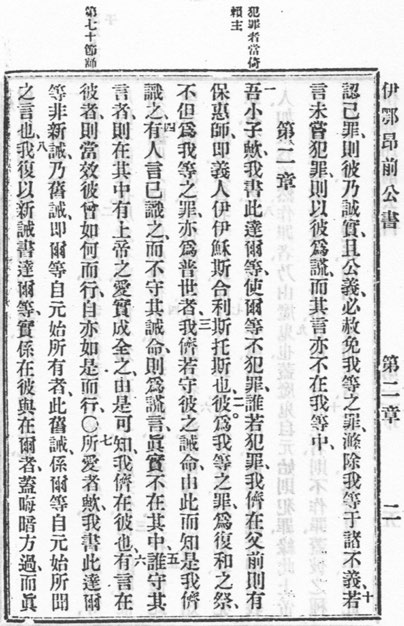 伊鄂昂前公書 第二章 二
認己罪、則彼乃誠實且公義、必赦免我等之罪、滌除我等于諸不義、十若
言未嘗犯罪、則以彼爲謊、而其言亦不在我等中、
第二章
犯罪者當倚
賴主
一吾小子歟、我書此達爾等、使爾等不犯罪、誰若犯罪、我儕在父前則有
保惠師、即義人伊伊穌斯合利斯托斯也、二。彼爲我等之罪、爲復和之祭、
不但爲我等之罪、亦爲普世者、三我儕若守彼之誡命、由此而知是我儕
識之、四有人言已識之、而不守其誡命、則爲謊言、眞實不在其中、五誰守其
言者、則在其中有上帝之愛實成全之、由是可知我儕在彼也、六有言在
第七十節師
彼者、則當效彼曾如何而行、自亦如是而行、〇七所愛者歟、我書此達爾
等、非新誡、乃舊誡、即爾等自元始所有者、此舊誡係爾等自元始所聞
之言也、八我復以新誡書達爾等、實係在彼與在爾者、蓋晦暗方過、而眞